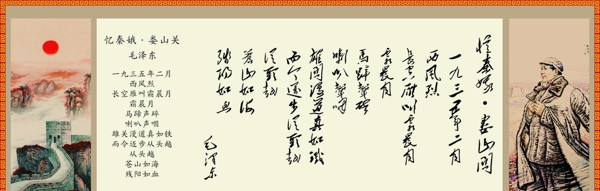 忆秦娥·娄山关
毛泽东
一九三五年二月
西风烈
长空雁叫霜晨月
霜晨月
马蹄声碎
喇叭声咽
雄关漫道真如铁
而今迈步从头越
从头越
苍山如海
残阳如血
忆秦娥·娄山关
一九三五年二月
西风烈
长空雁叫
霜晨月
马蹄声碎
喇叭声咽
雄关漫道真如铁
而今迈步从头越
苍山如海
残阳如血
毛泽东